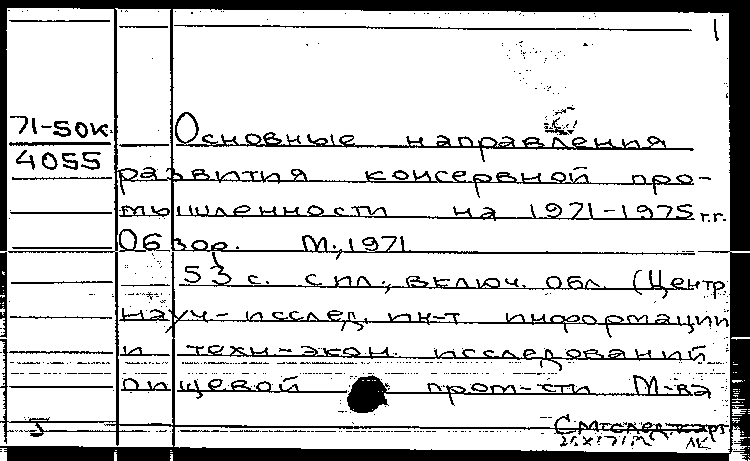 1
71-50к
4055
Основные направления
развития консервной про-
мышленности на 1971-1975 г.г.
Обзор. М., 1971
53 с. с ил., включ. обл. (Центр
науч-исслед. ин-т информации
и техн-экон. исследований
пищевой пром-сти М-ва
См след карт
ЛК